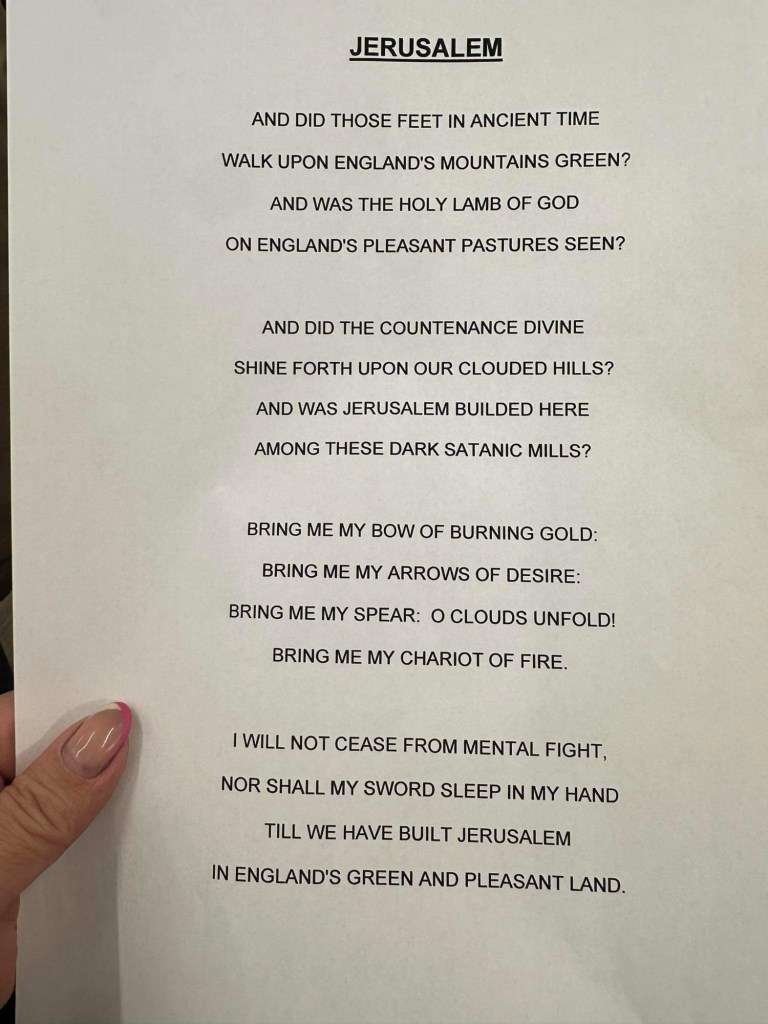 JERUSALEM
AND DID THOSE FEET IN ANCIENT TIME
WALK UPON ENGLAND'S MOUNTAINS GREEN?
AND WAS THE HOLY LAMB OF GOD
ON ENGLAND'S PLEASANT PASTURES SEEN?
AND DID THE COUNTENANCE DIVINE
SHINE FORTH UPON OUR CLOUDED HILLS?
AND WAS JERUSALEM BUILDED HERE
AMONG THESE DARK SATANIC MILLS?
BRING ME MY BOW OF BURNING GOLD:
BRING ME MY ARROWS OF DESIRE:
BRING ME MY SPEAR:  O CLOUDS UNFOLD!
BRING ME MY CHARIOT OF FIRE.
I WILL NOT CEASE FROM MENTAL FIGHT,
NOR SHALL MY SWORD SLEEP IN MY HAND
TILL WE HAVE BUILT JERUSALEM
IN ENGLAND'S GREEN AND PLEASANT LAND.